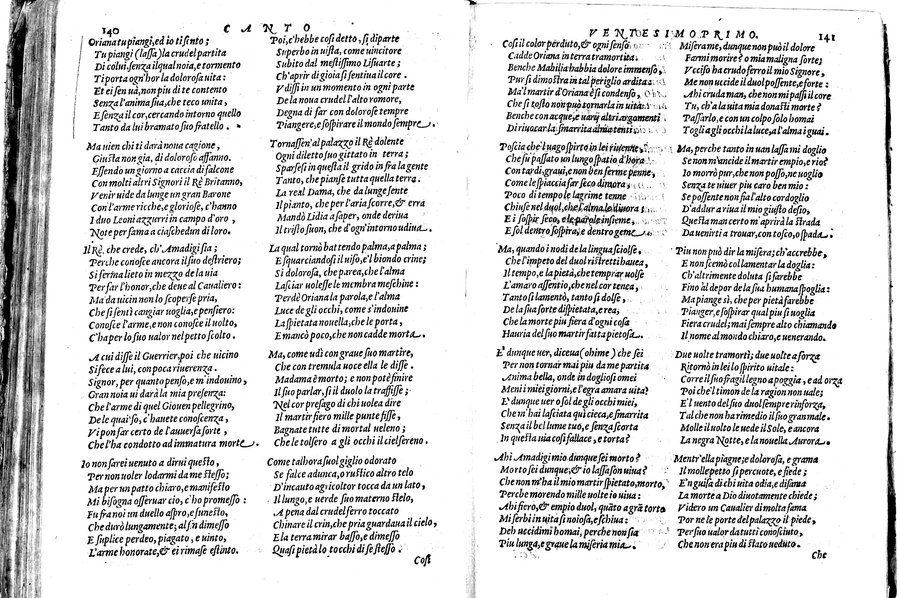 140 CANTO
Oriana tu piangi, ed io ti sento;
Tu piangi (lassa) la crudel partita
Di colui, senza il qual noia, e tormento
Ti porta ogn'hor la dolorosa uita:
Et ei sen uà, non piu di te contento
Senza l'anima sua, che teco unita,
E senza il cor, cercando intorno quello
Tanto da lui bramato suo fratello.
Ma uien chi ti darà noua cagione,
Giusta non già, di doloroso affanno.
Essendo un giorno a caccia di falcone
Con molti altri Signori il Rè Britanno,
Venir uide da lunge un gran Barone
Con l'arme ricche, e gloriose, c'hanno
I duo Leoni azzurri in campo d'oro,
Note per fama a ciaschedun di loro.
Il Rè, che crede, ch'Amadigi sia;
Perche conosce ancora il suo destriero;
Si ferma lieto in mezzo de la uia
Per far l'honor, che deue al Caualiero:
Ma da uicin non lo scoperse pria,
Che si sentì cangiar uoglia, e pensiero:
Conosce l'arme, e non conosce il uolto,
C'haper lo suo ualor nel petto scolto.
A cui disse il Guerrier, poi che uicino
Si fece a lui, con poca riuerenza.
Signor, per quanto penso, e m'indouino,
Gran noia ui darà la mia presenza:
Che l'arme di quel Giouen pellegrino,
De le quai so, c'hauete conoscenza,
Vi pon far certo de l'auuersa sorte,
Che l'ha condotto ad immatura morte.
Io non sarei uenuto a dirui questo,
Per non uoler lodarmi da me stesso;
Ma per un patto chiaro, e manifesto
Mi bisogna osseruar cio, c'ho promesso:
Fu fra noi un duello aspro, e funesto,
Che durò lungamente; al fin dimesso
E suplice perdeo, piagato, e uinto,
L'arme honorate, & ei rimase estinto.
Poi, c'hebbe cosi detto, si diparte
Superbo in uista, come uincitore
Subito dal mestissimo Lisuarte;
Ch'aprir di gioia si sentiua il core.
Vdissi in un momento in ogni parte
De la noua crudel l'alto romore,
Degna di far con dolorose tempre
Piangere, e sospirare il mondo sempre.
Tornassen'al palazzo il Rè dolente
Ogni diletto suo gittato in terra;
Sparsesi in questa il grido in fra la gente
Tanto, che pianse tutta quella terra.
La real Dama, che da lunge sente
Il pianto, che per l'aria scorre, & erra
Mandò Lidia a saper, onde deriua
Il tristo suon, che d'ogn'intorno udiua.
La qual tornò battendo palma, a palma;
E squarciandosi il uiso, e'l biondo crine;
Si dolorosa, che parea, che l'alma
Lasciar uolesse le membra meschine:
Perdè Oriana la parola, e l'alma
Luce de gli occhi, come s'indouine
La spietata nouella, che le porta,
E mancò poco, che non cadde morta.
Ma, come udì con graue suo martire,
Che con tremula uoce ella le disse.
Madama è morto; e non potè finire
Il suo parlar, sì il duolo la trafisse;
Nel cor presago di chi uolea dire
Il martir fiero mille punte fisse,
Bagnate tutte di mortal ueleno;
Che le tolsero a gli occhi il ciel sereno.
Come talhora suol giglio odorato
Se falce adunca, o rustico altro telo
D'incauto agricoltor tocca da un lato,
Il lungo, e uerde suo materno stelo,
A pena dal crudel ferro toccato
Chinare il crin, che pria guardaua il cielo,
E la terra mirar basso, e dimesso
Quasi pietà lo tocchi di se stesso.
Cosi
VENTESIMOPRIMO. 141
Cosi il color perduto, & ogni senso
Cadde Oriana in terra tramortita.
Benche Mabilia habbia dolore immenso,
Pur si dimostra in tal periglio ardita:
Ma'l martir d'Oriana è sì condenso,
Che sì tosto non può tornarla in uita:
Benche con acque, e uarij altri argomenti
Di riuocar la smarrita alma tenti.
Poscia che'l uago spirto in lei riuenne,
Che fu passato un lungo spatio d'hora
Con tardi, graui, e non ben ferme penne,
Come le spiaccia far seco dimora,
Poco di tempo le lagrime tenne
Chiuse nel duol, che l'alma le diuora;
E i sospir seco, e le parole insieme,
E sol dentro sospira, e dentro geme.
Ma, quando i nodi de la lingua sciolse,
Che l'impeto del duol ristretti hauea,
Il tempo, e la pietà, che temprar uolse
L'amaro assentio, che nel cor tenea,
Tanto si lamentò, tanto si dolse,
De la sua sorte dispietata, e rea,
Che la morte piu fiera d'ogni cosa
Hauria del suo martir fatta pietosa.
E' dunque uer, diceua (ohime) che sei
Per non tornar mai piu da me partita
Anima bella, onde in doglioso omei
Meni i miei giorni, e l'egra amara uita?
E' dunque uer o sol de gli occhi miei,
Che n'hai lasciata quì cieca, e smarrita
Senza il bel lume tuo, e senza scorta
In questa uia così fallace, e torta?
Ahi Amadigi mio dunque sei morto?
Morto sei dunque, & io lassa son uiua?
Che non m'ha il mio martir spietato, morto,
Perche morendo mille uolte io uiua:
Ahi fiero, & empio duol, quãto a grã torto
Mi serbi in uita sì noiosa, e schiua:
Deh uccidimi homai, perche non sia
Piu lunga, e graue la miseria mia.
Misera me, dunque non può il dolore
Farmi morire? o mia maligna sorte;
Vcciso ha crudo ferro il mio Signore,
Me non uccide il duol possente, e forte:
Ahi cruda man, che non mi passi il core
Tu, ch'a la uita mia donasti morte?
Passarlo, e con un colpo solo homai
Togli a gli occhi la luce, a l'alma i guai.
Ma, perche tanto in uan lassa mi doglio
Se non m'uccide il martir empio, e rio?
Io morrò pur, che non posso, ne uoglio
Senza te uiuer piu caro ben mio:
Se possente non sia l'alto cordoglio
D'addur a riua il mio giusto desio,
Questa man certo m'aprirà la strada
Da uenirti a trouar, con tosco, o spada.
Piu non può dir la misera; ch'accrebbe,
E non scemò col lamentar la doglia:
Ch'altrimente doluta si sarebbe
Fino al depor de la sua humana spoglia:
Ma piange sì, che per pietà farebbe
Pianger, e sospirar qual piu si uoglia
Fiera crudel; mai sempre alto chiamando
Il nome al mondo chiaro, e uenerando.
Due uolte tramortì; due uolte a forza
Ritornò in lei lo spirito uitale:
Corre il suo fragil legno a poggia, e ad orza
Poi che'l timon de la ragion non uale;
E'l uento del suo duol sempre rinforza,
Tal che non ha rimedio il suo gran male.
Molle il uolto le uede il Sole, e ancora
La negra Notte, e la nouella Aurora.
Mentr'ella piagne; e dolorosa, e grama
Il molle petto si percuote, e fiede;
E'n guisa di chi uita odia, e disama
La morte a Dio diuotamente chiede;
Videro un Caualier di molta fama
Por ne le porte del palazzo il piede,
Per suo ualor da tutti conosciuto,
Che non era piu di stato ueduto.
Che